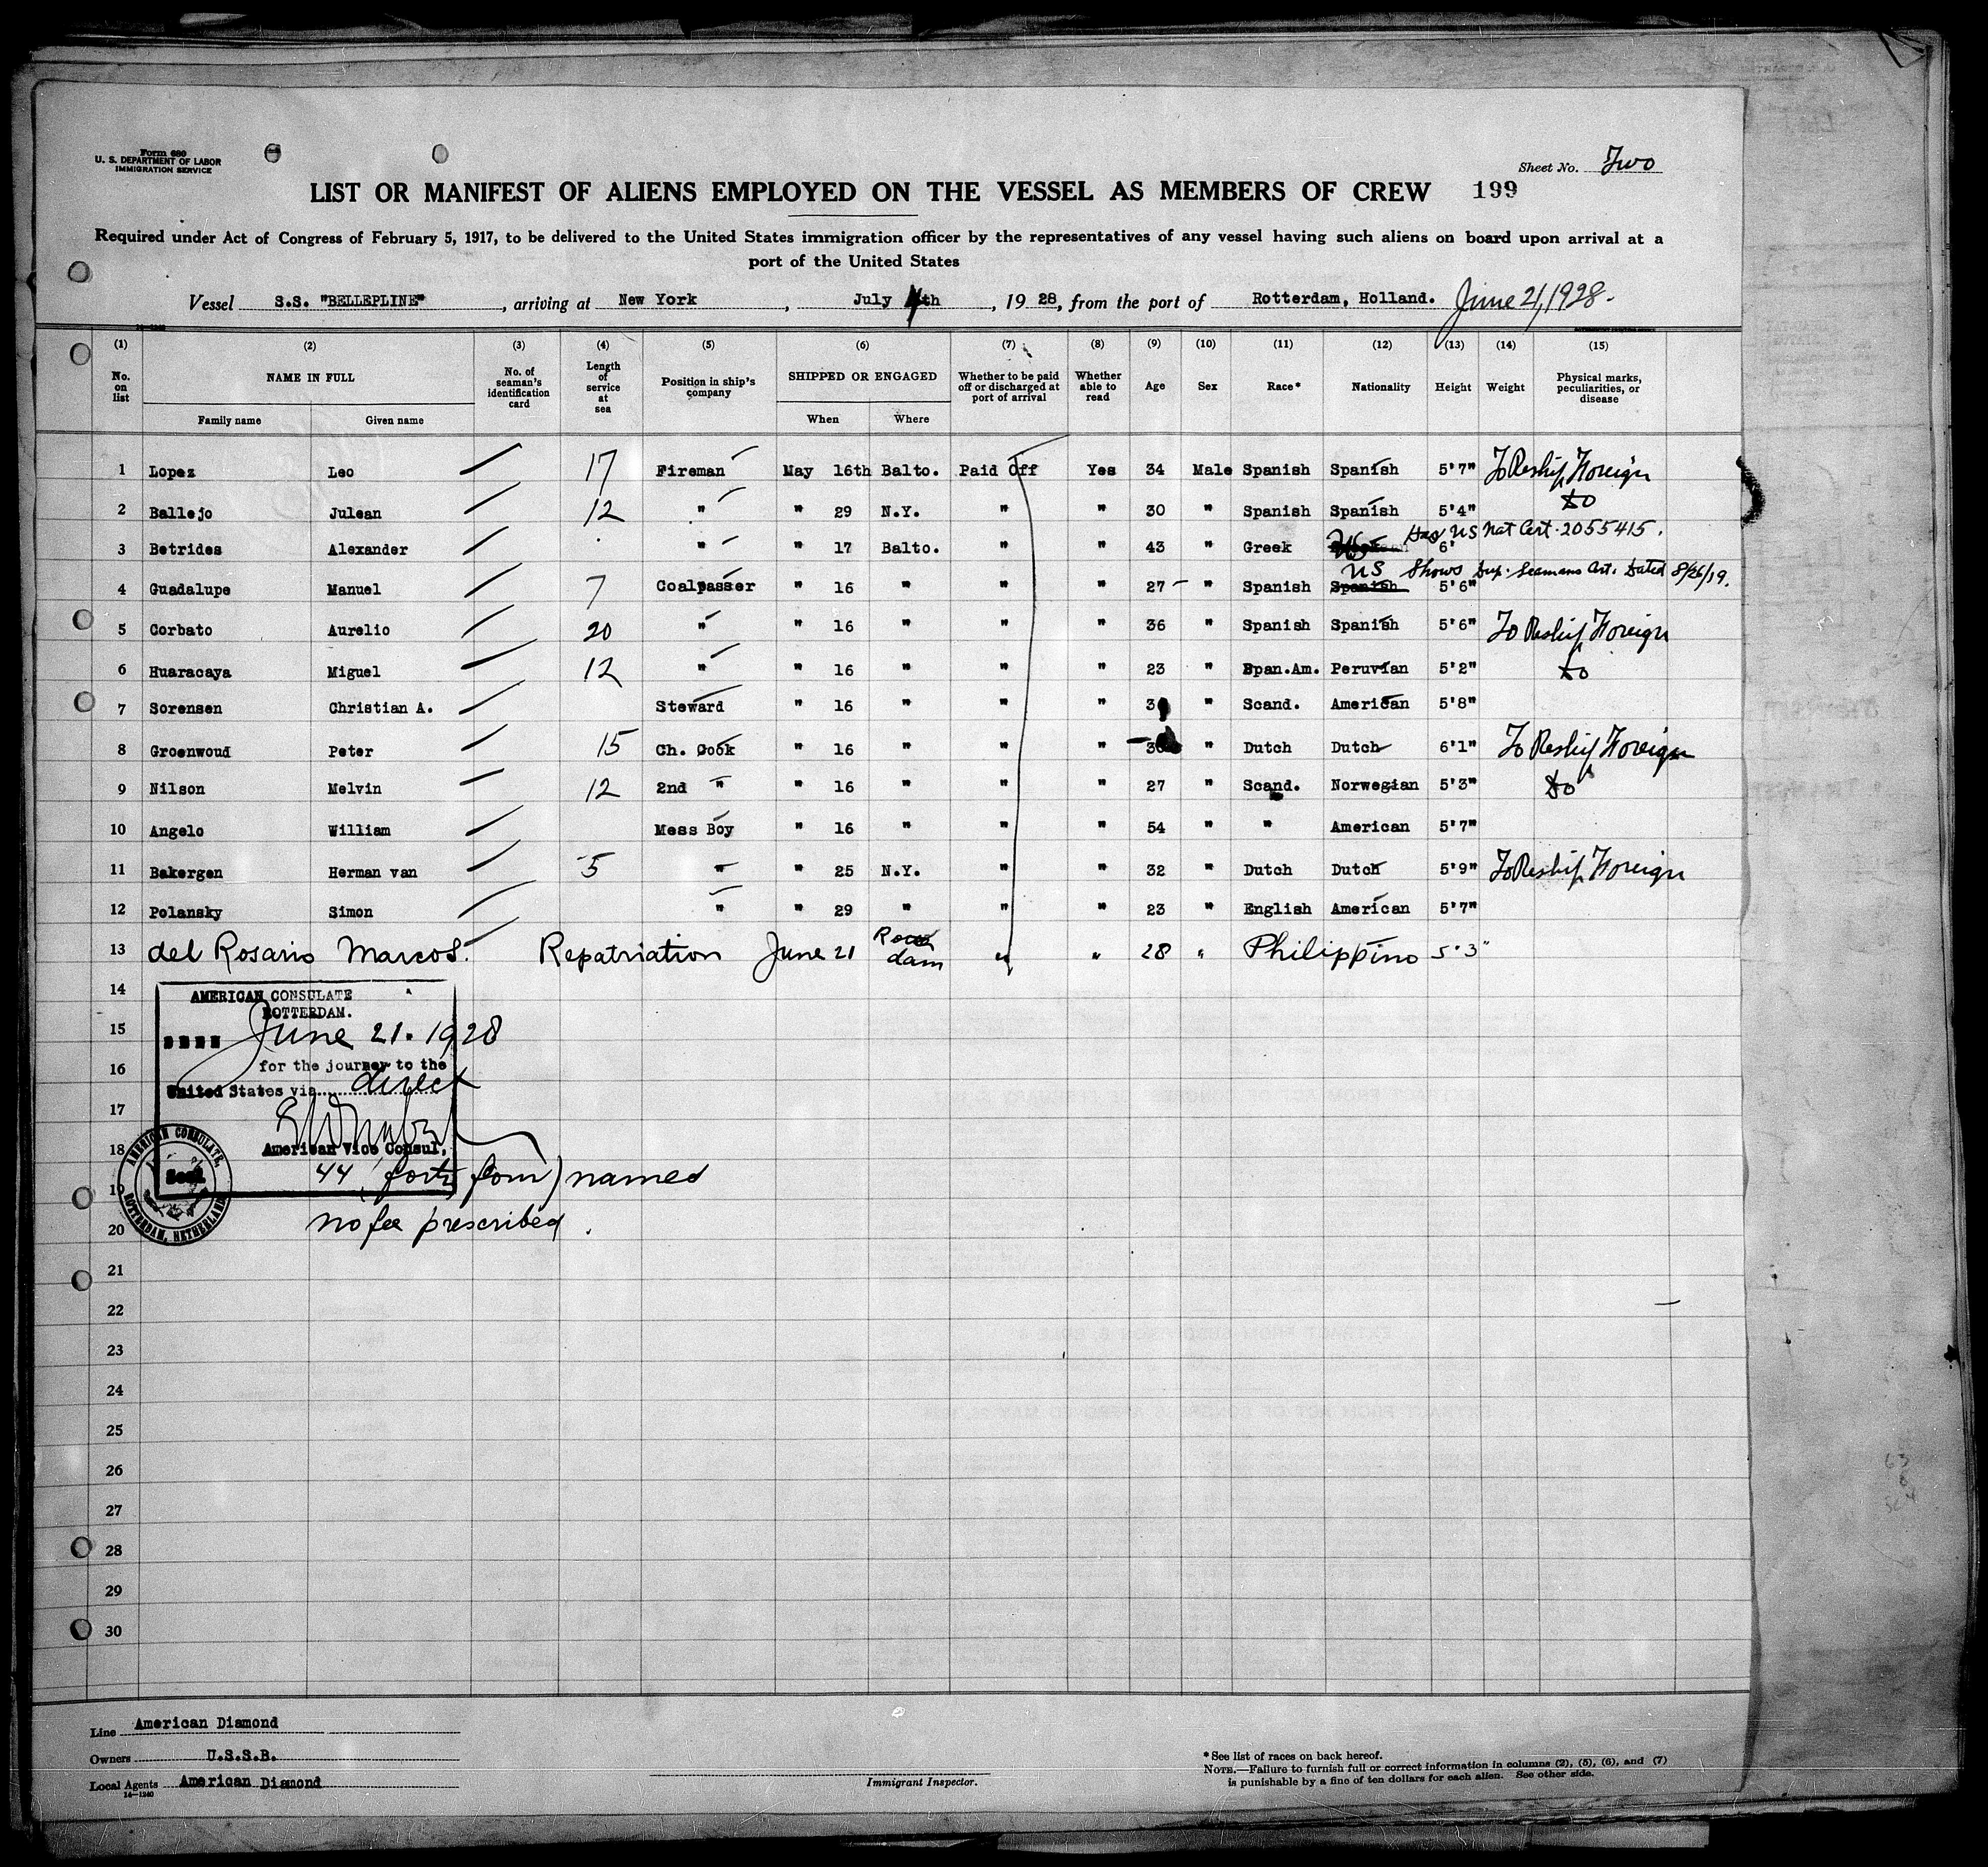 Form 680
U. S. DEPARTMENT OF LABOR
IMMIGRATION SERVICE
Sheet No. Two
LIST OR MANIFEST OF ALIENS EMPLOYED ON THE VESSEL AS MEMBERS OF CREW 199
Required under Act of Congress of February 5, 1917, to be delivered to the United States immigration officer by the representatives of any vessel having such aliens on board upon arrival at a
port of the United States
Vessel S.S. "BELLEPLINE", arriving at New York, July 4th, 1928, from the port of Rotterdam, Holland. June 21, 1928.
(1) (2) (3) (4) (5) (6) (7) (8) (9) (10) (11) (12) (13) (14) (15)
No. on list NAME IN FULL No. of seaman's identification card Length of service at sea Position in ship's company SHIPPED OR ENGAGED Whether to be paid off or discharged at port of arrival Whether able to read Age Sex Race* Nationality Height Weight Physical marks, peculiarities, or disease
Family name Given name When Where
1 Lopez Leo 17 Fireman May 16th Balto. Paid Off Yes 34 Male Spanish Spanish 5'7" To Reship Foreign
2 Ballejo Julean 12 " " 29 N.Y. " " 30 " Spanish Spanish 5'4" do
3 Betrides Alexander " " 17 Balto. " " 43 " Greek US 6' Has US Nat Cert. 2055415.
4 Guadalupe Manuel 7 Coalpasser " 16 " " " 27 " Spanish Spanish US 5'6" Shows Dup. Seamans Cert. Dated 8/26/19.
5 Corbato Aurelio 20 " " 16 " " " 36 " Spanish Spanish 5'6" To Reship Foreign
6 Huaracaya Miguel 12 " " 16 " " " 23 " Span.Am. Peruvian 5'2" do
7 Sorensen Christian A. Steward " 16 " " " " Scand. American 5'8"
8 Groenwoud Peter 15 Ch. Cook " 16 " " " " Dutch Dutch 6'1" To Reship Foreign
9 Nilson Melvin 12 2nd " " 16 " " " 27 " Scand. Norwegian 5'3" do
10 Angelo William Mess Boy " 16 " " " 54 " " American 5'7"
11 Bakergen Herman van 5 " " 25 N.Y. " " 32 " Dutch Dutch 5'9" To Reship Foreign
12 Polansky Simon " " 29 " " " 23 " English American 5'7"
13 del Rosario Marcos. Repatriation June 21 dam " " 28 " Philippino 5'3"
14
15
16
17
18
19
20
21
22
23
24
25
26
27
28
29
30
AMERICAN CONSULATE
ROTTERDAM.
June 21. 1928
for the journey to the
United States via direct
American Vice Consul,
44 (forty four) names
no fee prescribed.
AMERICAN CONSULATE,
ROTTERDAM, NETHERLANDS
Line American Diamond
Owners U.S.S.B.
Local Agents American Diamond
14—1240
Immigrant Inspector.
* See list of races on back hereof.
NOTE.—Failure to furnish full or correct information in columns (2), (5), (6), and (7)
is punishable by a fine of ten dollars for each alien. See other side.